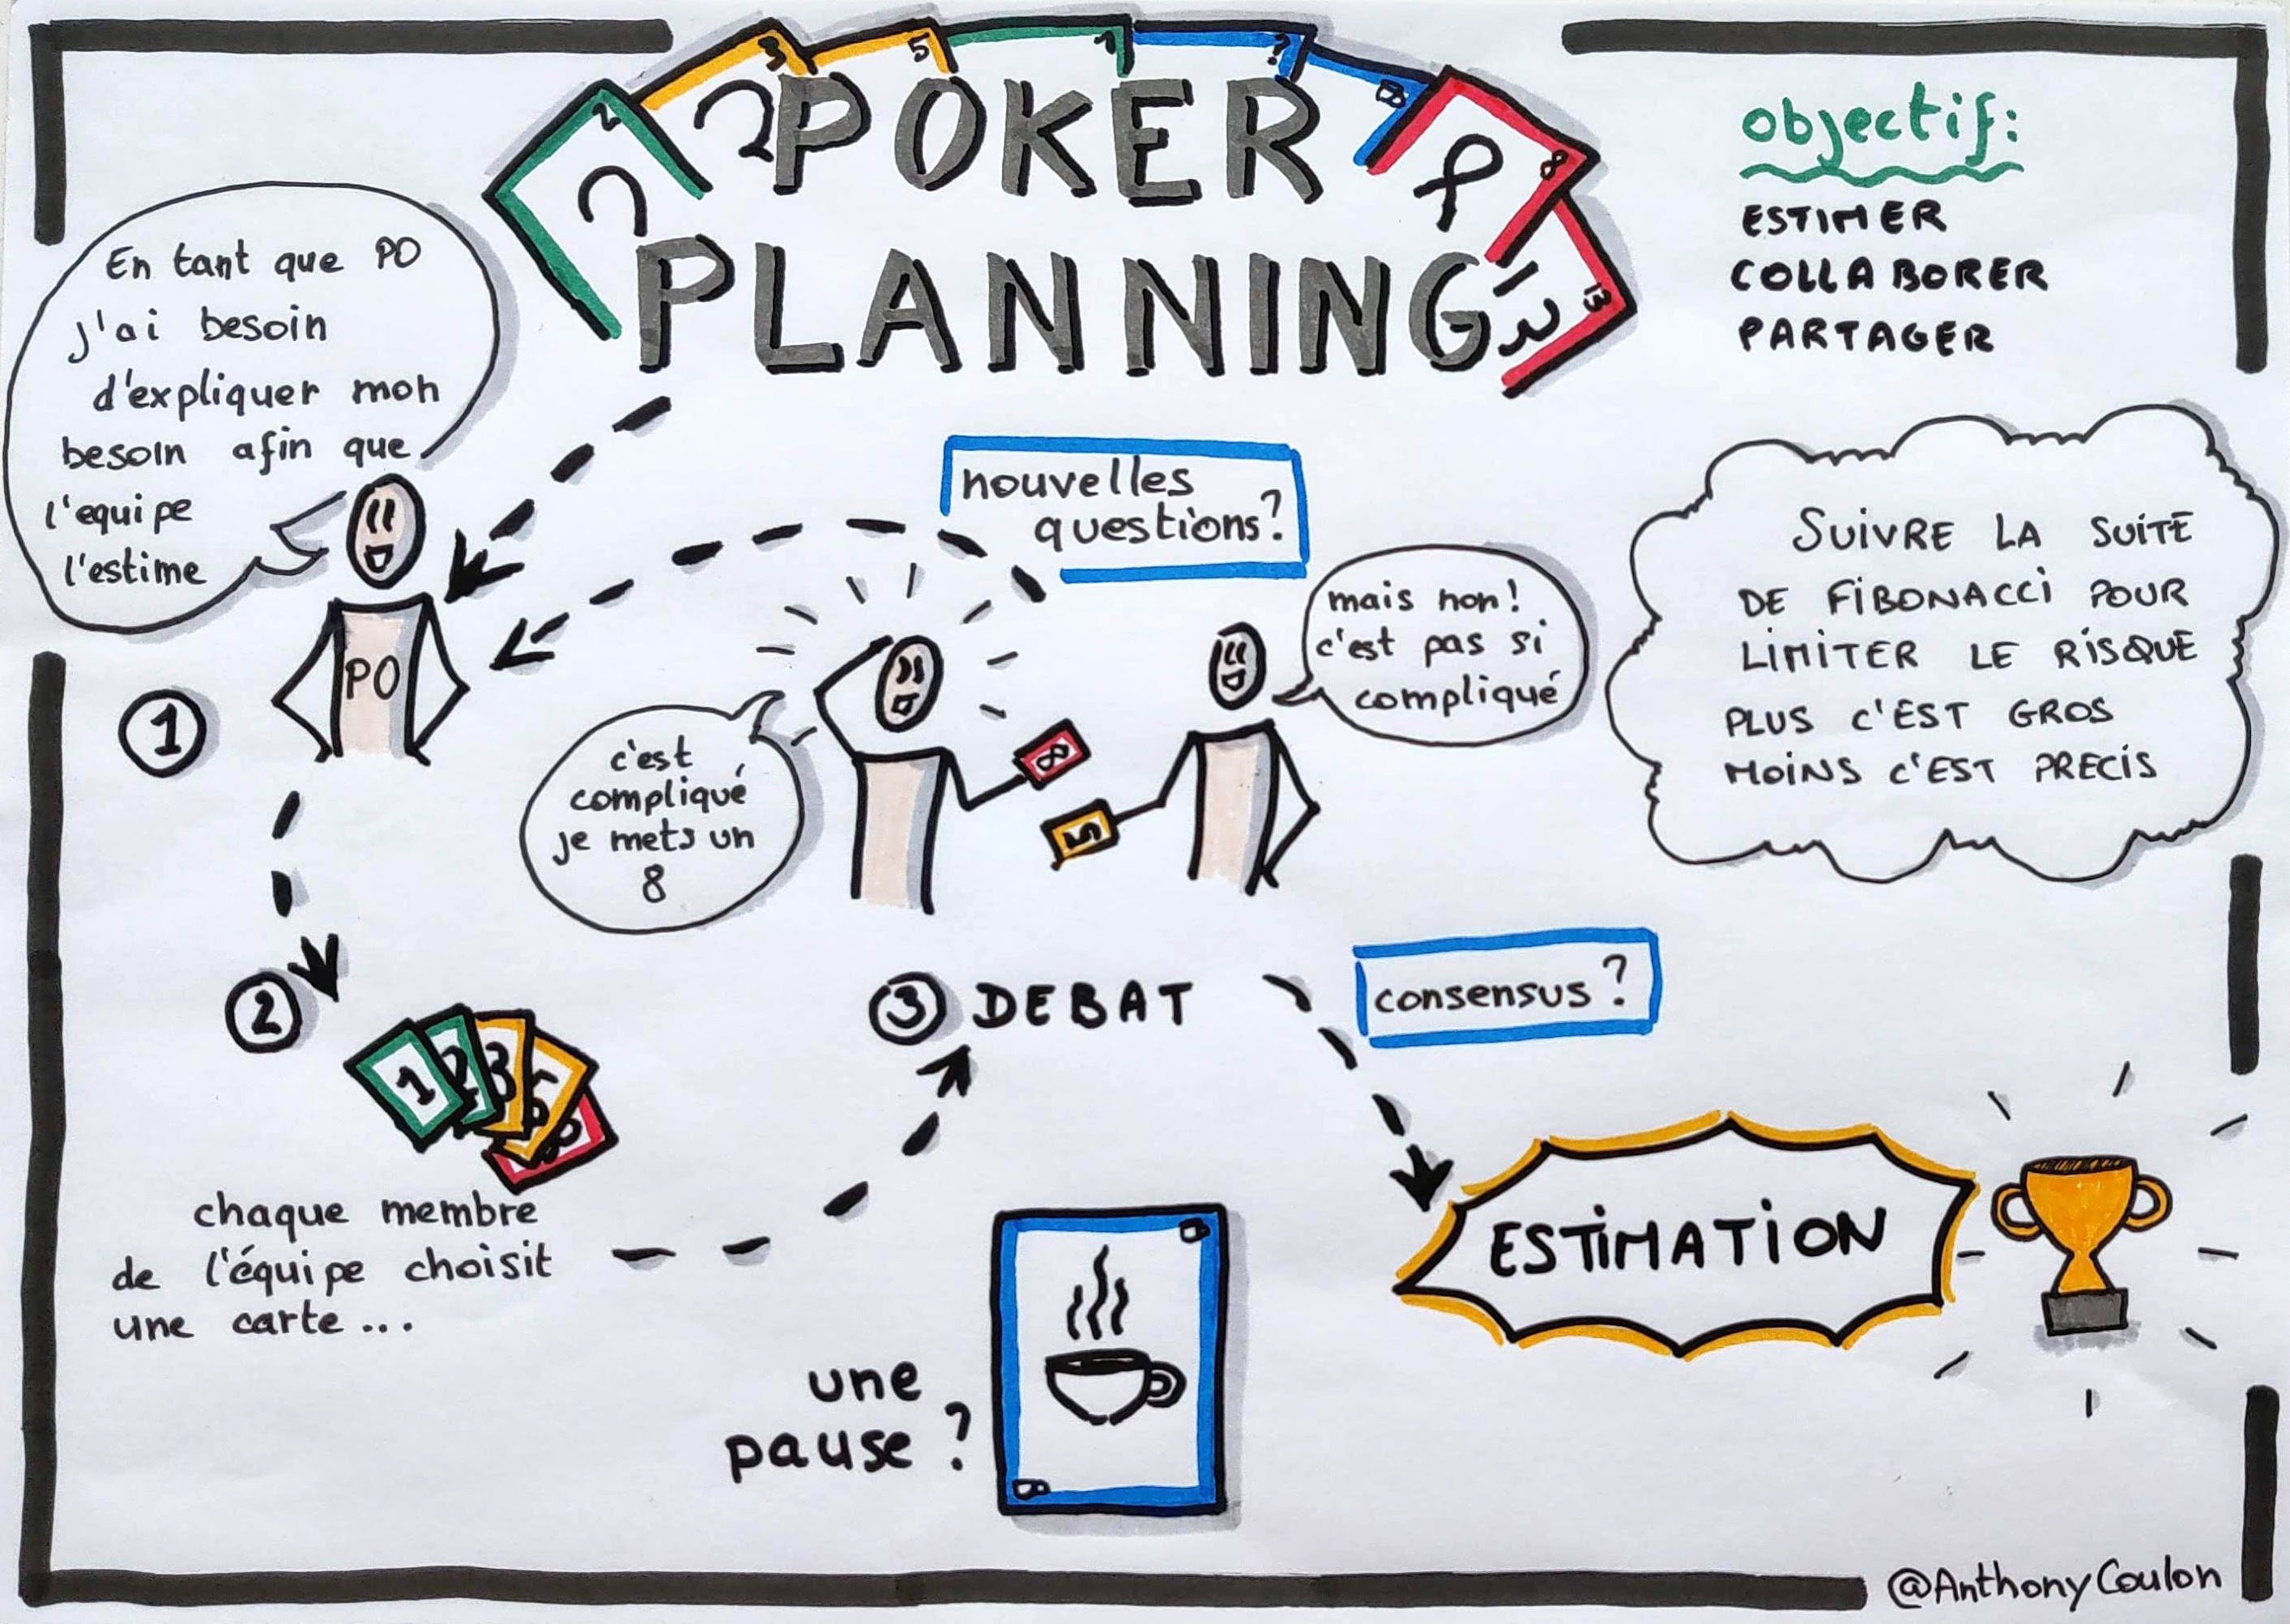 POKER
PLANNING
2
3
5
1
?
8
8
13
13
objectif:
ESTIMER
COLLABORER
PARTAGER
En tant que PO
j'ai besoin
d'expliquer mon
besoin afin que
l'equipe
l'estime
PO
1
nouvelles
questions?
mais non!
c'est pas si
compliqué
c'est
compliqué
je mets un
8
8
5
SUIVRE LA SUITE
DE FIBONACCI POUR
LIMITER LE RISQUE
PLUS C'EST GROS
MOINS C'EST PRECIS
2
1
2
3
5
8
chaque membre
de l'équipe choisit
une carte...
3 DEBAT
consensus?
ESTIMATION
une
pause?
@AnthonyCoulon